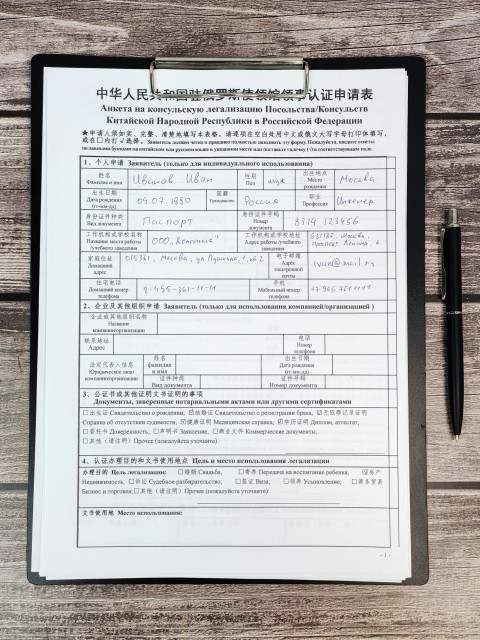 中华人民共和国驻俄罗斯使领馆领事认证申请表
Анкета на консульскую легализацию Посольства/Консульств
Китайской Народной Республики в Российской Федерации
★申请人须如实、完整、清楚地填写本表格。请逐项在空白处用中文或俄文大写字母打印体填写,
或在□内打√选择。Заявитель должен четко и правдиво полностью заполнить эту форму. Пожалуйста, вводите ответы
заглавными буквами на китайском или русском языке в указанном ниже месте или поставьте галочку (√) в соответствующем поле.
1、个人申请 Заявитель (только для индивидуального использования)
姓名 Фамилия и имя Иванов Иван 性别 Пол муж 出生地点 Место рождения Москва
出生日期 Дата рождения (гг-мм-дд) 09.07.1980 国籍 Гражданство Россия 职业 Профессия Инженер
身份证件种类 Вид документа Паспорт 身份证件号码 Номер документа 8314 123456
工作机构或学校名称 Название места работы /учебного заведения ООО "Компания" 工作机构或学校地址 Адрес работы /учебного заведения Москва, проспект Ленина, 6
家庭住址 Домашний адрес 015361, Москва, ул. 1, кв 2 电子邮箱 Адрес электронной почты ivan@mail.ru
住宅电话 Домашний номер телефона 8-495-361-11-11 手机 Мобильный номер телефона
2、企业及其他组织申请 Заявитель (только для использования компанией/организацией)
企业或其他组织名称 Название компании/организации
联系地址 Адрес 电话 Номер телефона
法定代表人信息 Юридическое лицо компании/организации 姓名 фамилия и имя 出生日期 Дата рождения (гг-мм-дд)
证件种类 Вид документа 证件号码 Номер документа
3、公证书或其他证明文书证明的事项
Документы, заверенные нотариальными актами или другими сертификатами
□出生证 Свидетельство о рождении, ☑结婚证 Свидетельство о регистрации брака, ☑无犯罪记录证明
Справка об отсутствии судимости; ☑健康证明 Медицинская справка; ☑学历证明 Диплом, аттестат;
□委托书 Доверенность; □声明书 Заявление; □商业文件 Коммерческие документы;
□其他(请注明) Прочее (пожалуйста уточните):
4、认证办理目的和文书使用地点 Цель и место использования легализации
办理目的 Цель легализации: □结婚 Свадьба; □寄养 Передача на воспитание ребенка; ☑房产
Недвижимость, □诉讼 Судебное разбирательство; □签证 Виза; □领养 Усыновление; □商务贸易
Бизнес и торговля; □其他(请注明) Прочее (пожалуйста уточните):
文书使用地 Место использования:
- 1 -